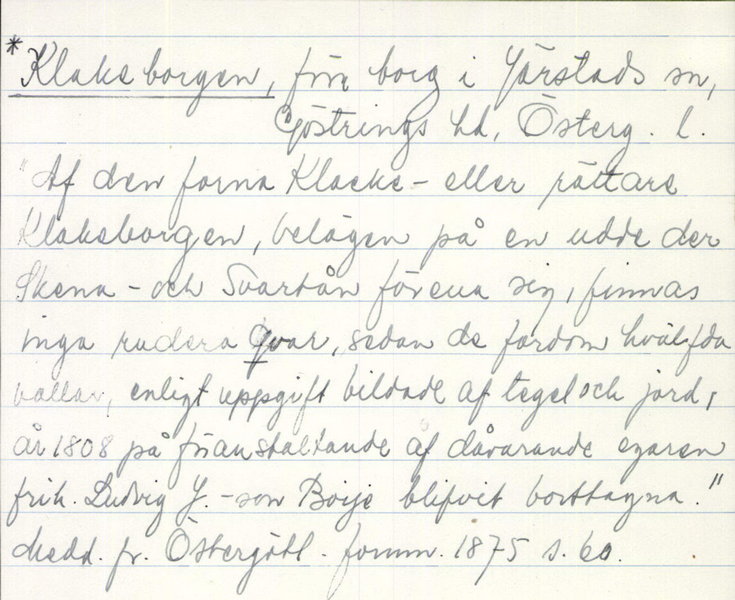 *Klakeborgen, förr borg i Järstads sn,
Göstrings hd, Österg. l.
"Af den forna Klacke- eller rättare
Klakeborgen, belägen på en udde der
Skena- och Svartån förena sig, finnas
inga rudera qvar, sedan de fordom hvälfda
vallar, enligt uppgift bildade af tegel och jord,
år 1808 på föranstaltande af dåvarande egaren
frih. Ludvig J.-son Boije blifvit borttagna."
Medd. fr. Östergötl. fornm. 1875 s. 60.